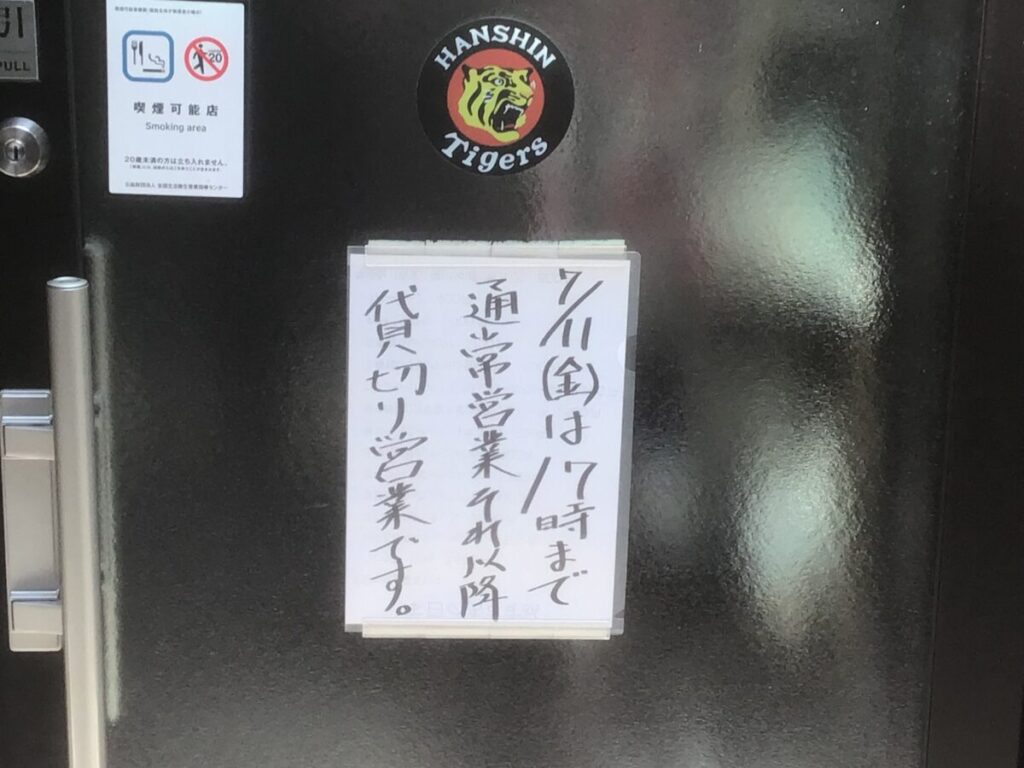 引
PULL
20
喫煙可能店
Smoking area
20歳未満の方は立ち入れません。
HANSHIN
Tigers
7/11(金)は17時まで
通常営業それ以降
貸切り営業です。